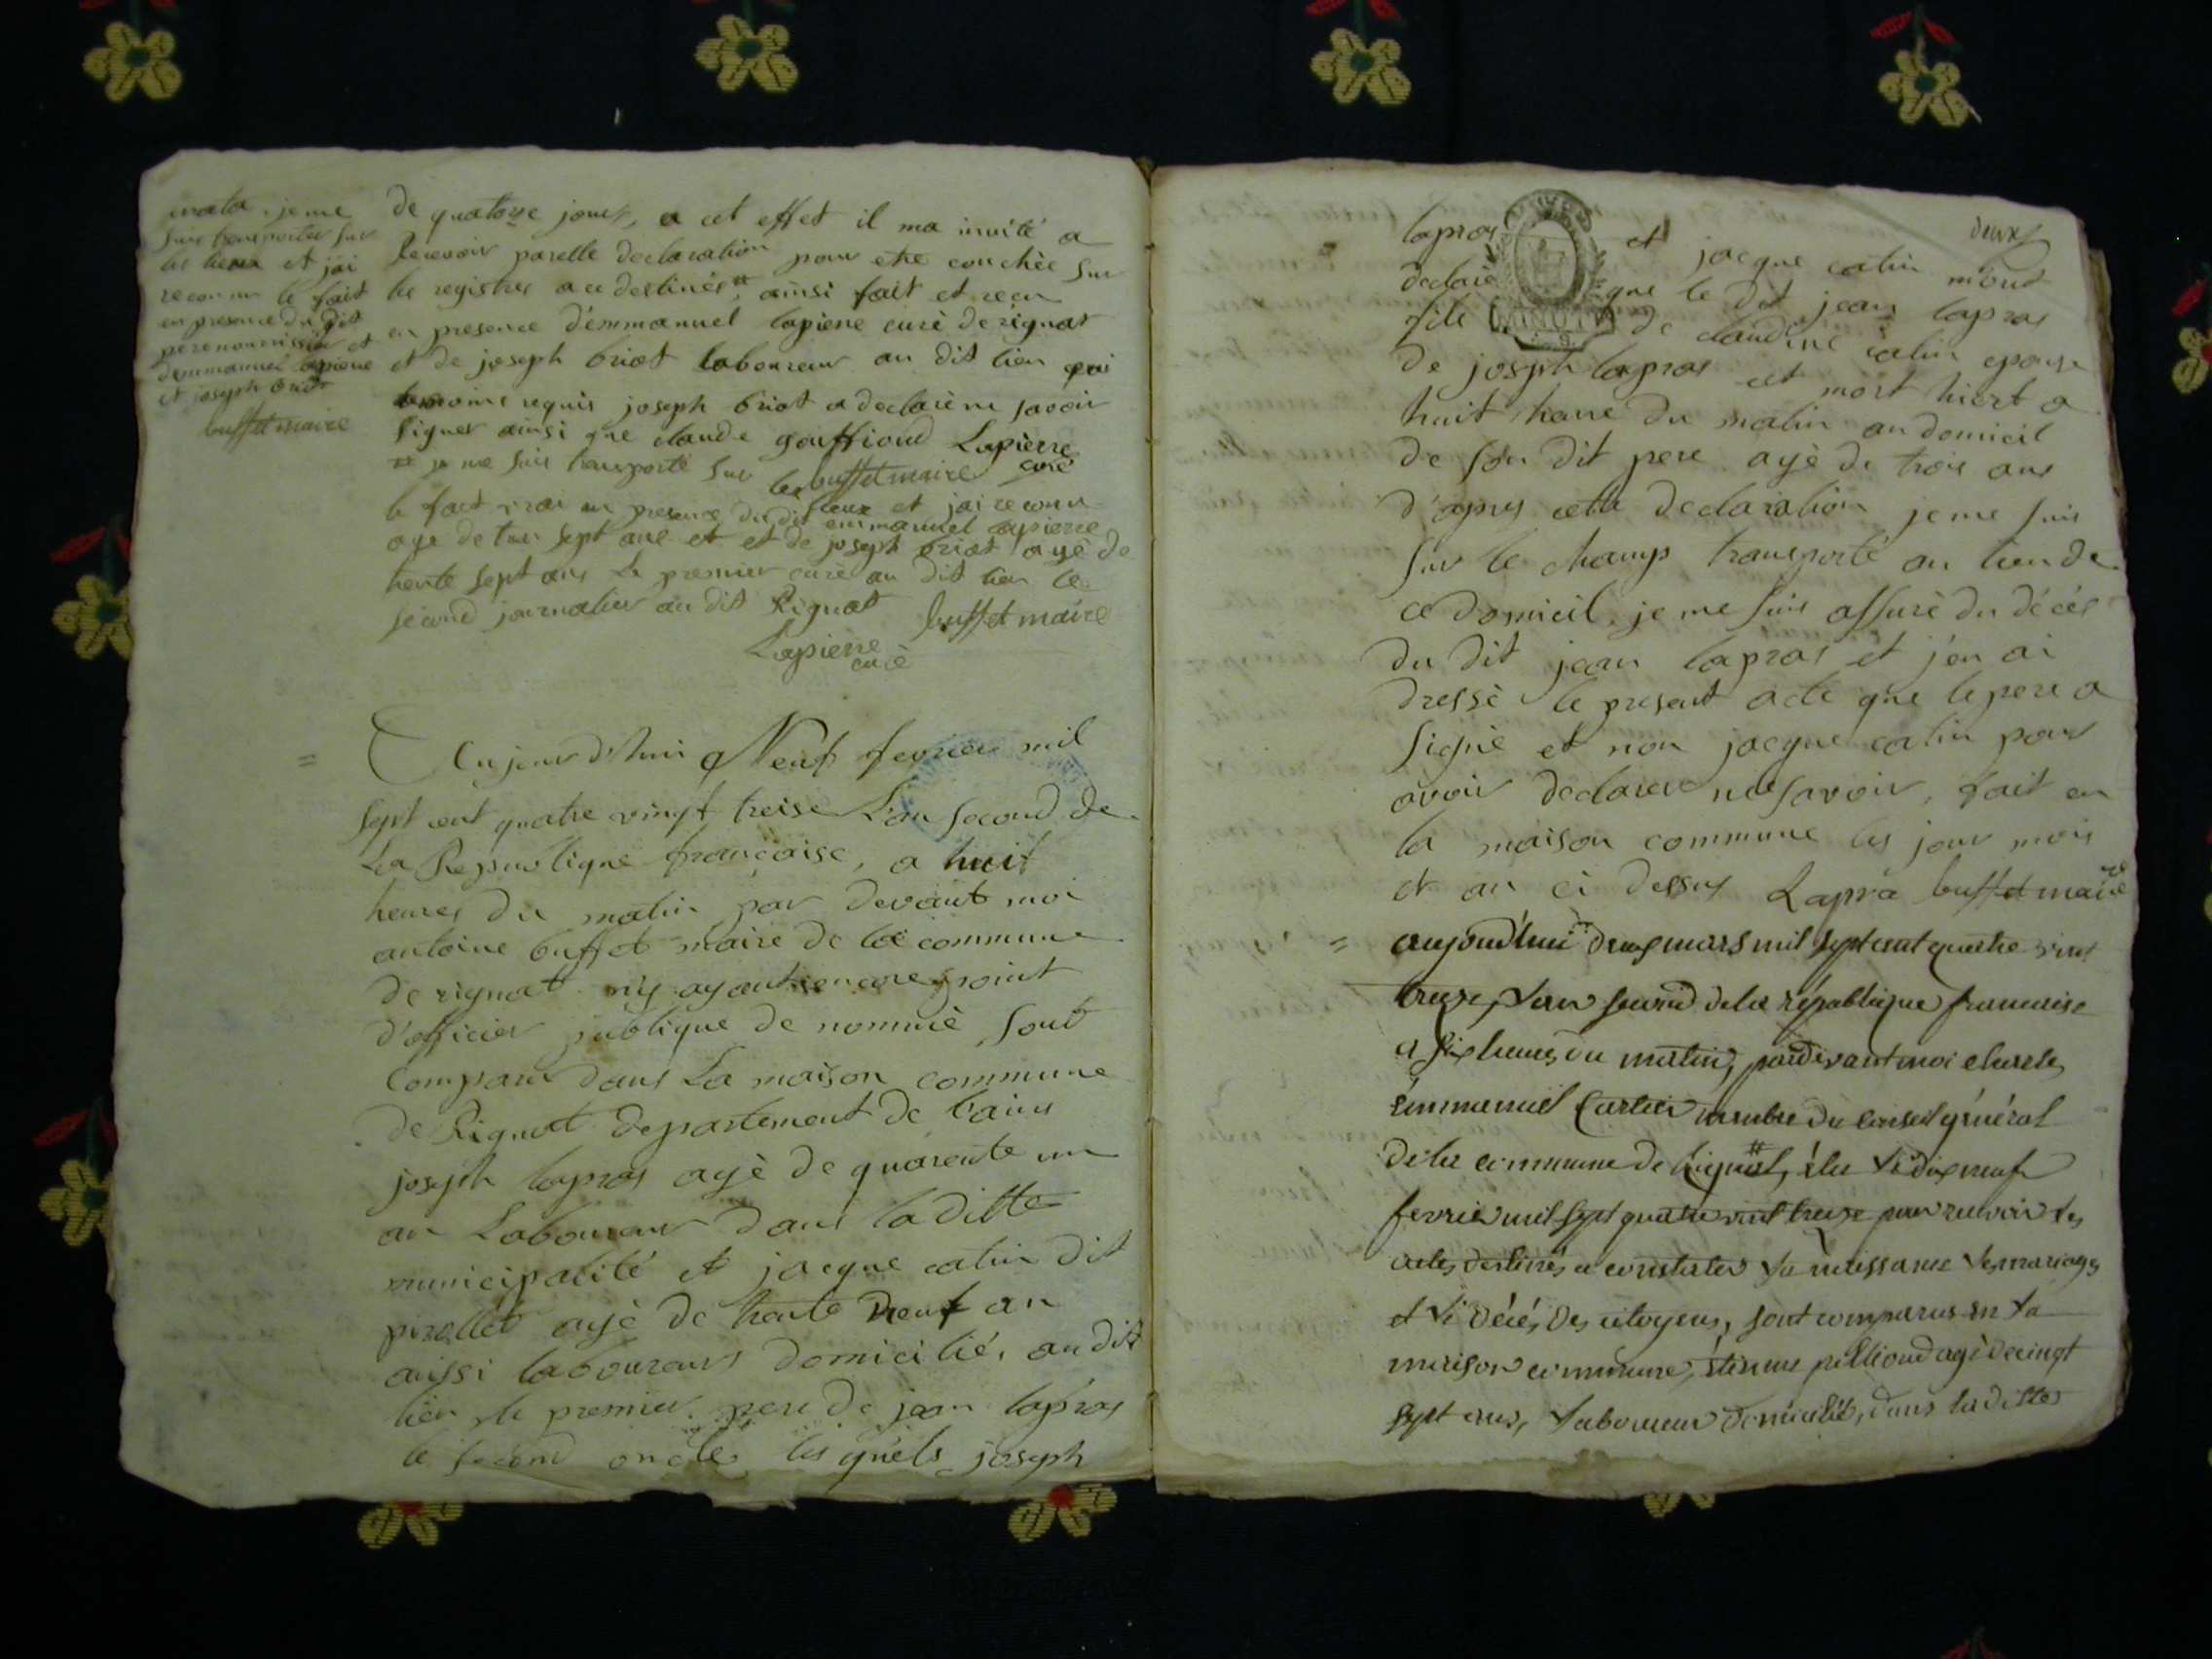 errata. je me
suis transporter sur
les lieux et jai
reconnu le fait
en presence du dit
pere nourissier et
demmanuel lapierre
et joseph briot
buffet maire
de quatorze jours, a cet effet il ma invité a
recevoir pareille declaration pour etre couchée sur
les registres a ce destinés # ainsi fait et recu
en presence d'emmanuel lapierre curè de rignat
et de joseph briot laboureur au dit lieu
temoins requis joseph briot a declarè ne savoir
signer ainsi que claude gouffioud Lapierre
curé
# je me suis transporté sur les buffet maire
lieux et jai reconu
le fait vrai en presence du dit emmanuel lapierre
age de sept ans et et de joseph briot agè de
trente sept ans le premier curè au dit lieu le
second journalier au dit Rignat buffet maire
Lapierre
curè
= Aujourd'hui Neuf fevrier mil
sept cent quatre vingt treise L'an second de
La Republique françoise, a huit
heures du matin par devant moi
antoine buffet maire de la commune
de rignat ny ayant encore point
d'officier publique de nommé, sont
comparu dans La maison commune
de Rignat departement de l'ain
joseph lapras agè de quarente un
an Laboureur dans la ditte
municipalité et jacque catin dit
pirollet agè de trente neuf an
aussi laboureurs domiciliés au dit
lieu le premier pere de jean lapras
le second oncle les quels joseph
deux
lapras et jacque catin m'ont
declaré que le dit jean lapras
MINUTE
fils de claudine catin epouse
de joseph lapras est mort hiert a
huit heure du matin au domicil
de son dit pere agè de trois ans
d'apres cette declaration je me suis
sur le champ transporté au lieu de
ce domicil, je me suis assurè du décès
du dit jean lapras et j'en ai
dressè le present acte que le pere a
signé et non jacque catin pour
avoir declarer ne savoir, fait en
la maison commune les jour mois
et an ci dessus Lapra buffet maire
= aujourd'hui deux mars mil sept cent quatre vint
treize, l'an second de la république francaise
a six heures du matin, pardevant moi charles
emmanuel Cartier membre du conseil général
de la commune de Rignat, # élu le dix neuf
fevrier mil sept quatre vint treize pour recevoir les
actes destinés a constater la naissance les mariages
et le décés des citoyens, sont comparus en la
maison commune, étienne pillioud agé de vingt
sept ans, laboureur domicilié, dans la ditte